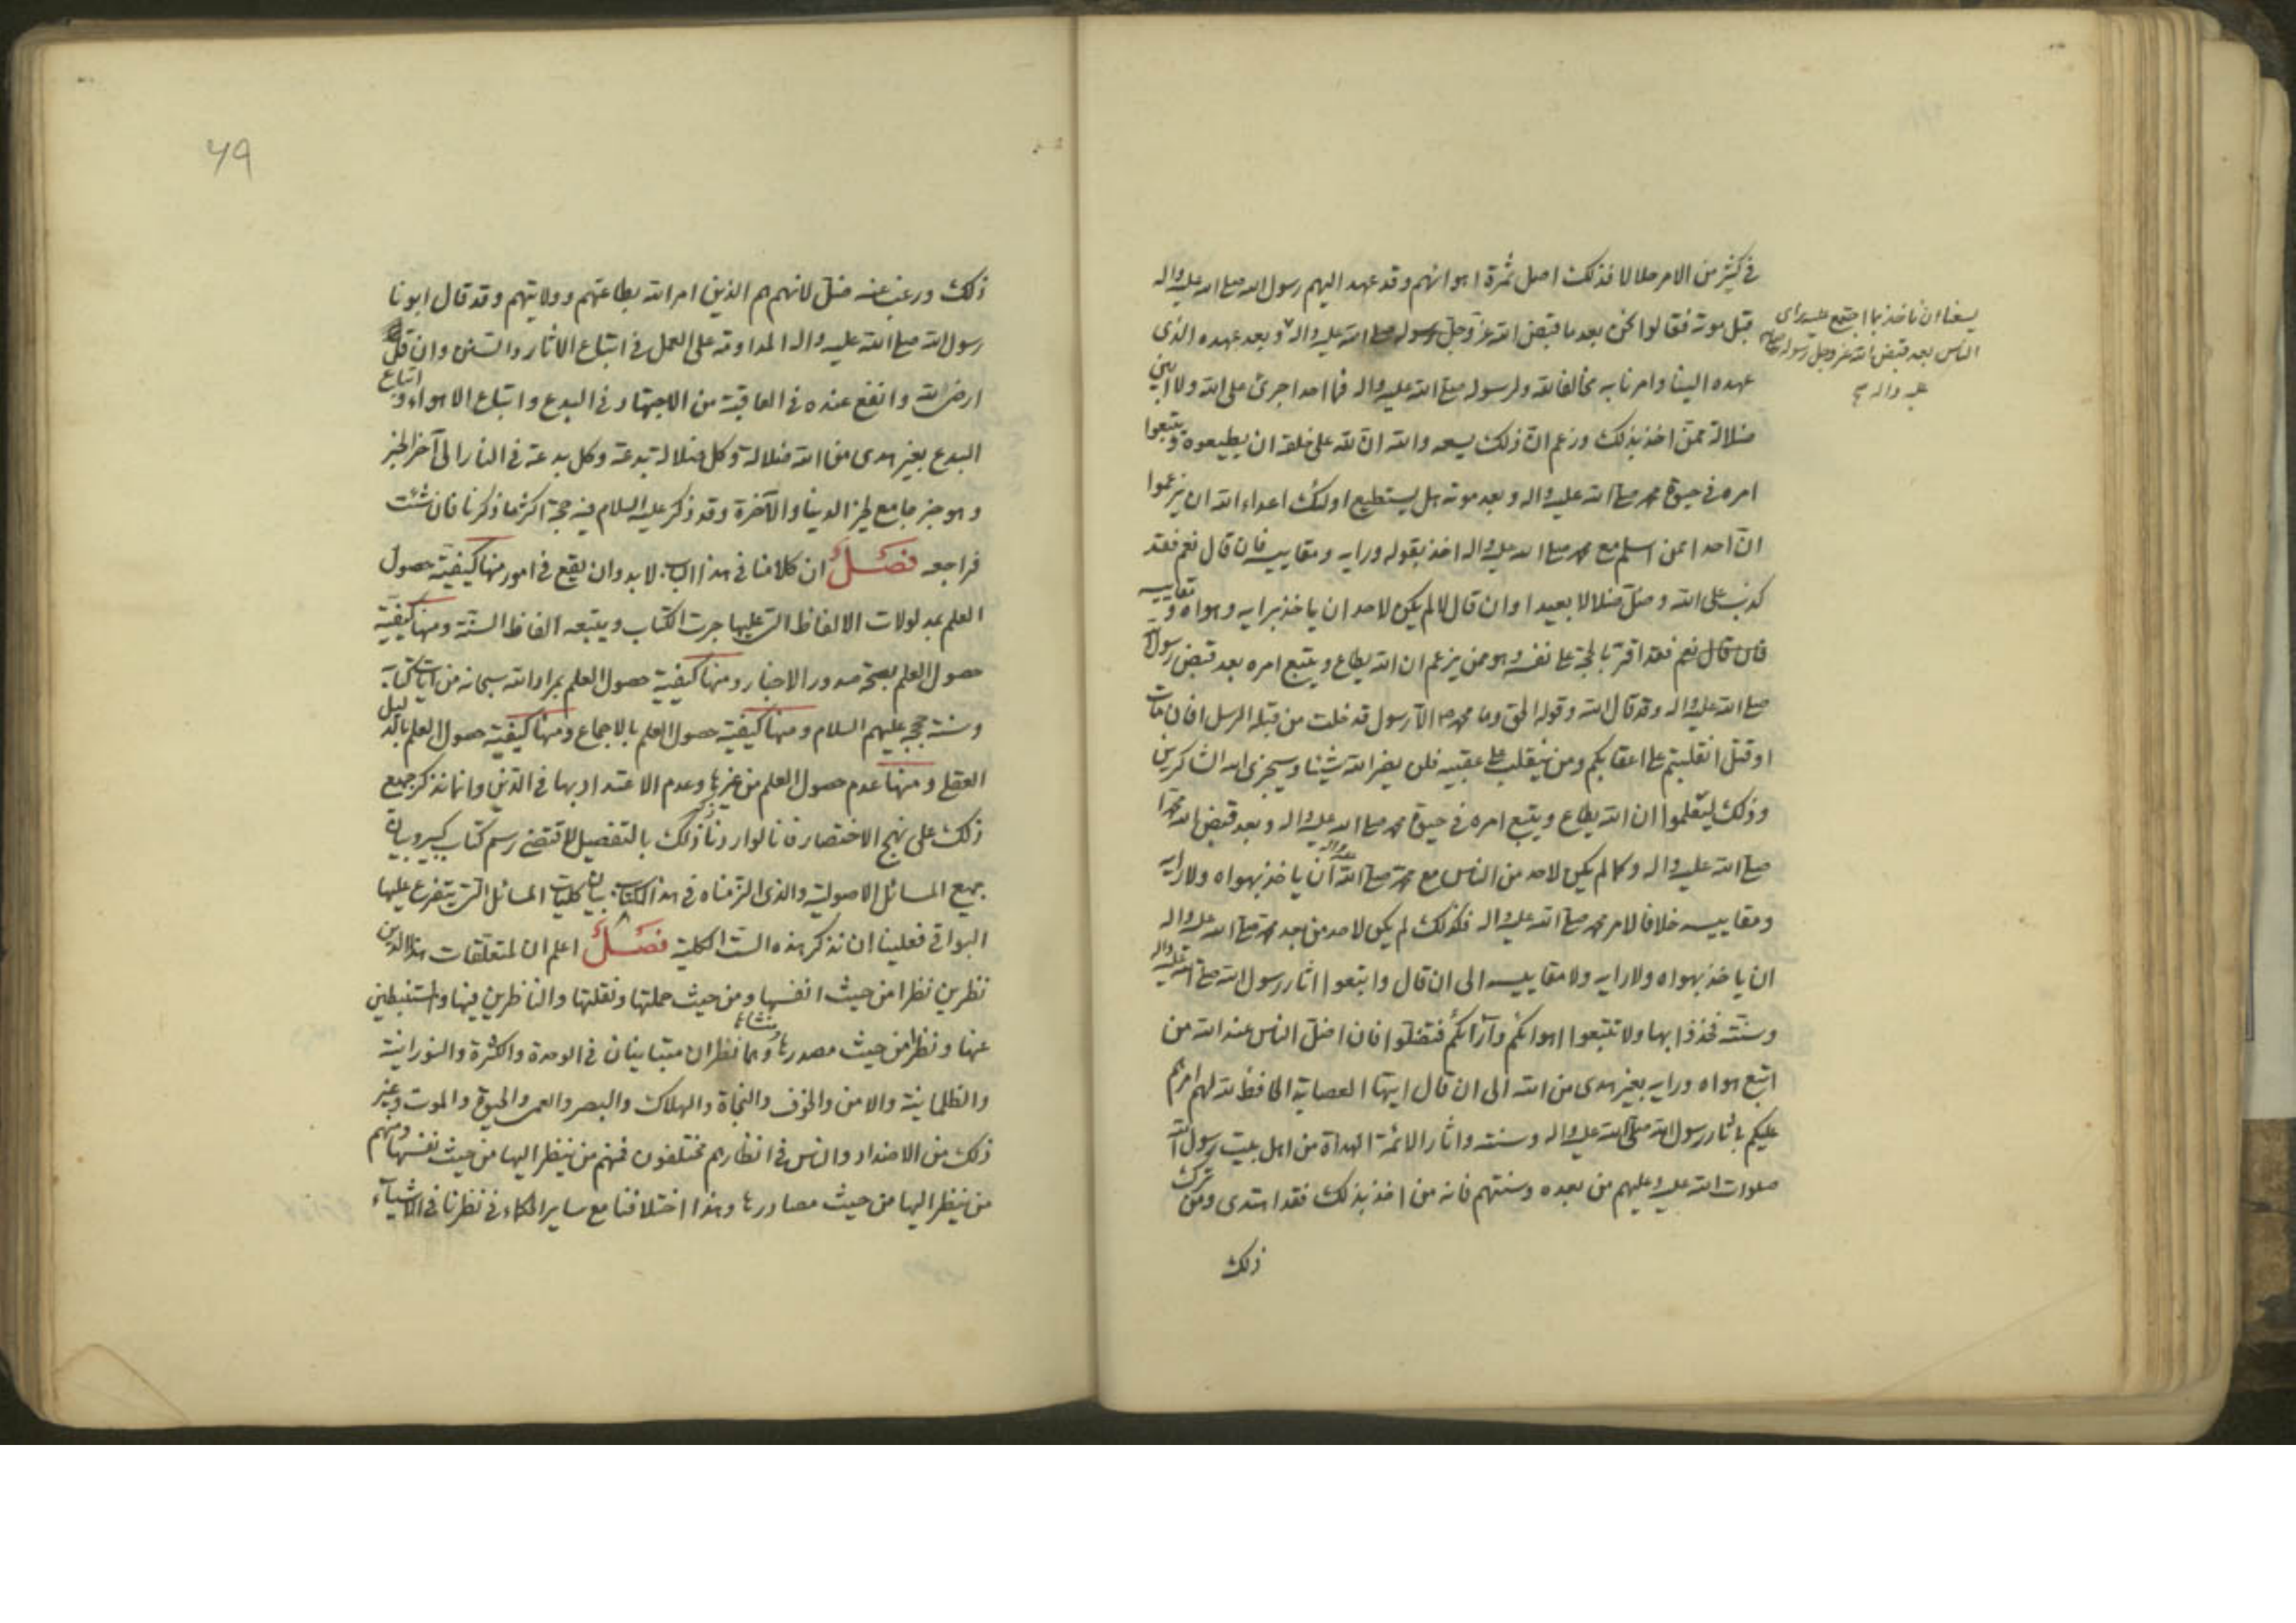 في كثير من الامر حلالا فذلك اصل ثمرة اهوائهم وقد عهد اليهم رسول الله صلى الله عليه واله
قبل موته فقالوا نحن بعد ما قبض الله عز وجل رسوله صلى الله عليه واله وبعد عهده الذي
يسعنا ان ناخذ بما اجتمع عليه راى
الناس بعد قبض الله عز وجل رسوله صلى الله
عليه واله صح
عهده الينا وامرنا به مخالفا لله ولرسوله صلى الله عليه واله فما احد اجرئ على الله ولا ابين
ضلالة ممن اخذ بذلك وزعم ان ذلك يسعه والله ان لله على خلقه ان يطيعوه ويتبعوا
امره في حيوة محمد صلى الله عليه واله وبعد موته هل يستطيع اولئك اعداء الله ان يزعموا
ان احدا ممن اسلم مع محمد صلى الله عليه واله اخذ بقوله ورايه ومقاييسه فان قال نعم فقد
كذب على الله وضل ضلالا بعيدا وان قال لا لم يكن لاحد ان ياخذ برايه وهواه ومقاييسه
فان قال نعم فقد اقر بالحجة على نفسه وهو ممن يزعم ان الله يطاع ويتبع امره بعد قبض رسول الله
صلى الله عليه واله وقد قال الله وقوله الحق وما محمد الا رسول قد خلت من قبله الرسل افان مات
او قتل انقلبتم على اعقابكم ومن ينقلب على عقبيه فلن يضر الله شيئا وسيجزى الله الشاكرين
وذلك ليعلموا ان الله يطاع ويتبع امره في حيوة محمد صلى الله عليه واله وبعد قبض الله محمدا
صلى الله عليه واله وكما لم يكن لاحد من الناس مع محمد صلى الله عليه واله ان ياخذ بهواه ولا رايه
ومقاييسه خلافا لامر محمد صلى الله عليه واله فكذلك لم يكن لاحد من بعد محمد صلى الله عليه واله
ان ياخذ بهواه ولا رايه ولا مقاييسه الى ان قال واتبعوا اثار رسول الله صلى الله عليه واله
وسنته فخذوا بها ولا تتبعوا اهوائكم وآرائكم فتضلوا فان اضل الناس عند الله من
اتبع هواه ورايه بغير هدى من الله الى ان قال ايتها العصابة الحافظ الله لهم امرهم
عليكم باثار رسول الله صلى الله عليه واله وسنته واثار الائمة الهداة من اهل بيت رسول الله
صلوات الله عليه وعليهم من بعده وسنتهم فانه من اخذ بذلك فقد اهتدى ومن ترك
ذلك
49
ذلك ورغب عنه ضل لانهم هم الذين امر الله بطاعتهم وولايتهم وقد قال ابونا
رسول الله صلى الله عليه واله المداومة على العمل في اتباع الاثار والسنن وان قل
ارضى لله وانفع عنده في العاقبة من الاجتهاد في البدع واتباع الاهواء واتباع
البدع بغير هدى من الله ضلالة وكل ضلالة بدعة وكل بدعة في النار الى آخر الخبر
وهو خبر جامع لخير الدينا والآخرة وقد ذكر عليه السلام فيه حجة اكثر مما ذكرنا فان شئت
فراجعه فصل ان كلامنا في هذا الباب لا بد وان يقع في امور منها كيفية حصول
العلم بمدلولات الالفاظ التي عليها جرت الكتاب ويتبعه الفاظ السنة ومنها كيفية
حصول العلم بصحة صدور الاخبار ومنها كيفية حصول العلم بمراد الله سبحانه من ايات كتابه
وسنة حججه عليهم السلام ومنها كيفية حصول العلم بالاجماع ومنها كيفية حصول العلم بالدليل
العقلي ومنها عدم حصول العلم من غيرها وعدم الاعتداد بها في الدين وانما نذكر جميع
ذلك على نهج الاختصار فانا لو اردنا ذكر ذلك بالتفصيل لاقتضى رسم كتاب كبير وبيان
جميع المسائل الاصولية والذي الزمناه في هذا الكتاب بيان كليات المسائل التي يتفرع عليها
البواقي فعلينا ان نذكر هذه الست الكلية فصل اعلم ان لمتعلقات هذا الدين
نظرين نظرا من حيث انفسها ومن حيث حملتها ونقلتها والناظرين فيها والمستنبطين
عنها ونظرا من حيث مصدرها ومنشاءها وهما نظران متباينان في الوحدة والكثرة والنورانية
والظلمانية والامن والخوف والنجاة والهلاك والبصر والعمى والحيوة والموت وغير
ذلك من الاضداد والناس في انظارهم مختلفون فمنهم من ينظر اليها من حيث نفسها ومنهم
من ينظر اليها من حيث مصادرها وهذا اختلافنا مع ساير الحكماء في نظرنا في الاشياء